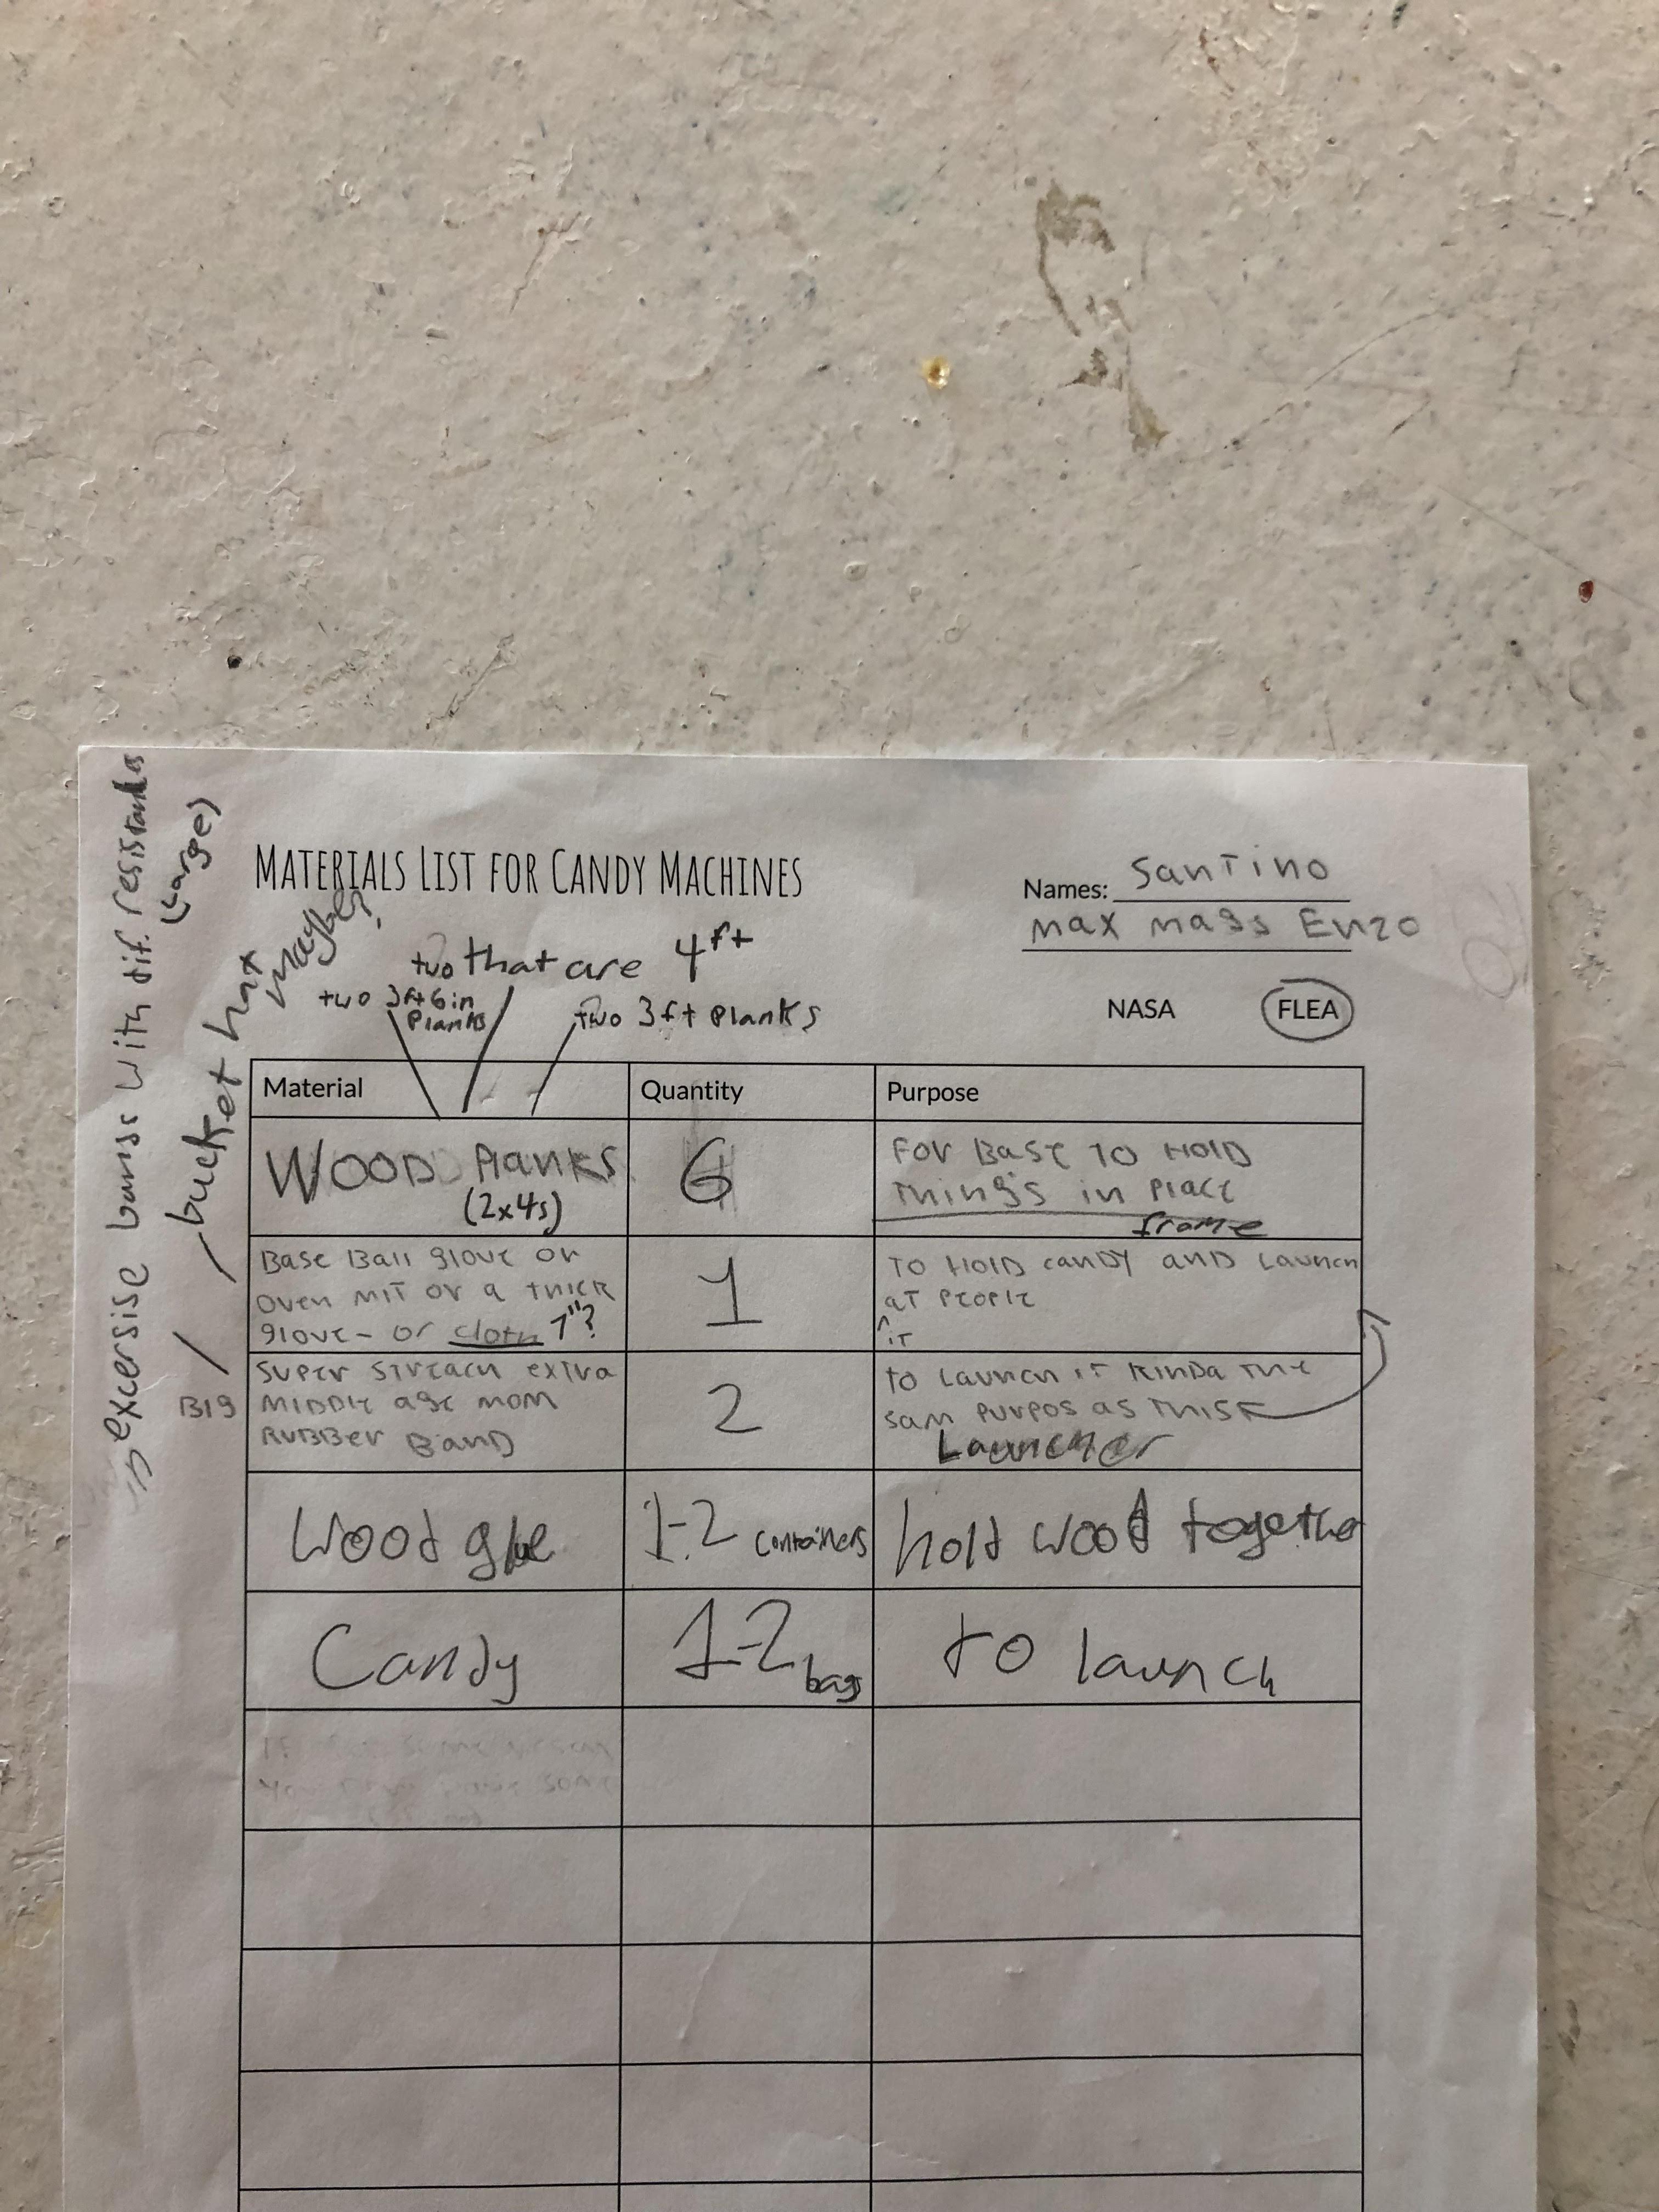 MATERIALS LIST FOR CANDY MACHINES
Names: Santino
max mass Enzo
NASA FLEA
excersise bands with dif. resistandes
(Large)
bucket hat
maybe?
two that are 4ft
two 3ft 6in
Planks
two 3ft Planks
Material Quantity Purpose
WOOD Planks
(2x4s)
6
FOR BASE TO HOLD
THINGS in Place
frame
Base Ball glove or
oven mit or a thick
glove- or cloth 1"?
1
TO HOLD candy AND Launch
aT People
^it
BIG
Super streach extra
MIDDle age mom
RUBBer BanD
2
to Launch it KinDa the
sam purpos as THISE
Launcher
Wood glue
1-2 containers
hold wood together
Candy
1-2 bags
to launch